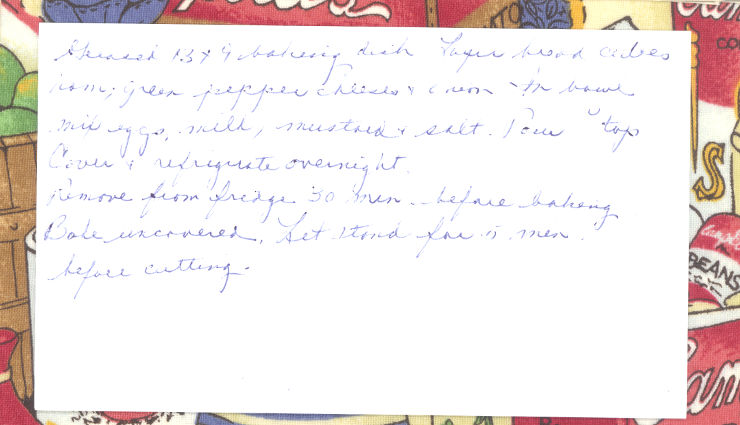 Greased 13 x 9 baking dish Layer bread cubes
ham, green pepper cheeses & onion In bowl
mix eggs, milk, mustard & salt. Pour top
Cover & refrigerate overnight.
Remove from fridge 30 min. before baking
Bake uncovered. Let stand for 5 min.
before cutting.
BEANS